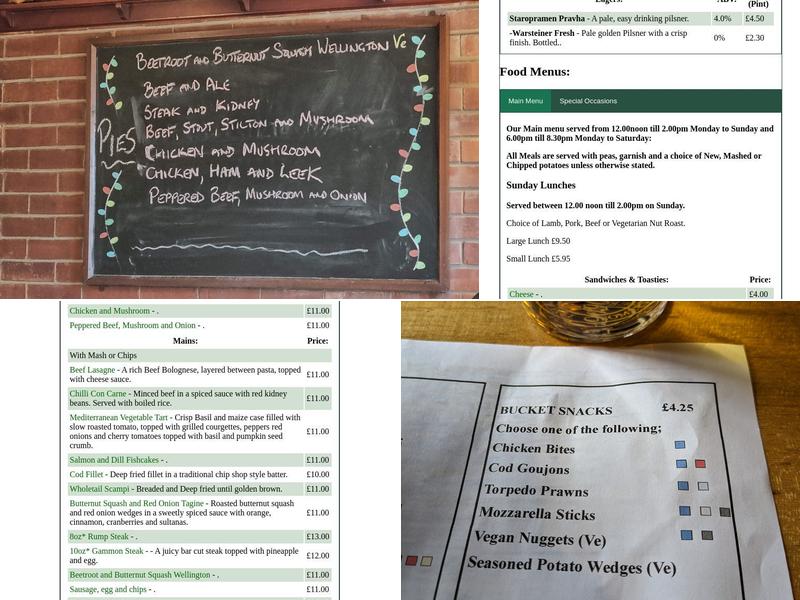 BEETROOT AND BUTTERNUT SQUASH WELLINGTON Ve
BEEF AND ALE
STEAK AND KIDNEY
BEEF, STOUT, STILTON AND MUSHROOM
PIES
CHICKEN AND MUSHROOM
CHICKEN, HAM AND LEEK
PEPPERED BEEF, MUSHROOM AND ONION
(Pint)
Staropramen Pravha - A pale, easy drinking pilsner. 4.0% £4.50
-Warsteiner Fresh - Pale golden Pilsner with a crisp
finish. Bottled.. 0% £2.30
Food Menus:
Main Menu Special Occasions
Our Main menu served from 12.00noon till 2.00pm Monday to Sunday and
6.00pm till 8.30pm Monday to Saturday:
All Meals are served with peas, garnish and a choice of New, Mashed or
Chipped potatoes unless otherwise stated.
Sunday Lunches
Served between 12.00 noon till 2.00pm on Sunday.
Choice of Lamb, Pork, Beef or Vegetarian Nut Roast.
Large Lunch £9.50
Small Lunch £5.95
Sandwiches & Toasties: Price:
Cheese - . £4.00
Chicken and Mushroom - . £11.00
Peppered Beef, Mushroom and Onion - . £11.00
Mains: Price:
With Mash or Chips
Beef Lasagne - A rich Beef Bolognese, layered between pasta, topped
with cheese sauce. £11.00
Chilli Con Carne - Minced beef in a spiced sauce with red kidney
beans. Served with boiled rice. £11.00
Mediterranean Vegetable Tart - Crisp Basil and maize case filled with
slow roasted tomato, topped with grilled courgettes, peppers red
onions and cherry tomatoes topped with basil and pumpkin seed
crumb. £11.00
Salmon and Dill Fishcakes - . £11.00
Cod Fillet - Deep fried fillet in a traditional chip shop style batter. £10.00
Wholetail Scampi - Breaded and Deep fried until golden brown. £11.00
Butternut Squash and Red Onion Tagine - Roasted butternut squash
and red onion wedges in a sweetly spiced sauce with orange,
cinnamon, cranberries and sultanas. £11.00
8oz* Rump Steak - . £13.00
10oz* Gammon Steak - - A juicy bar cut steak topped with pineapple
and egg. £12.00
Beetroot and Butternut Squash Wellington - . £11.00
Sausage, egg and chips - . £11.00
BUCKET SNACKS £4.25
Choose one of the following;
Chicken Bites
Cod Goujons
Torpedo Prawns
Mozzarella Sticks
Vegan Nuggets (Ve)
Seasoned Potato Wedges (Ve)